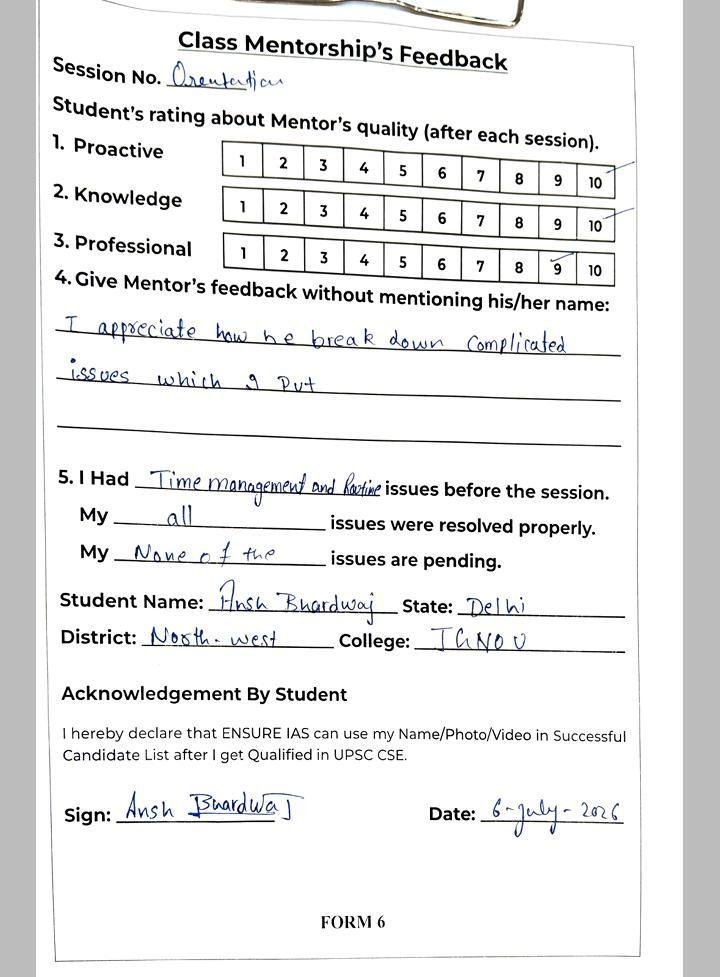 Class Mentorship's Feedback
Session No. Orentation
Student's rating about Mentor's quality (after each session).
1. Proactive 1 2 3 4 5 6 7 8 9 10
2. Knowledge 1 2 3 4 5 6 7 8 9 10
3. Professional 1 2 3 4 5 6 7 8 9 10
4. Give Mentor's feedback without mentioning his/her name:
I appreciate how he break down complicated
issues which I put
5. I Had Time management and Routine issues before the session.
My all issues were resolved properly.
My None of the issues are pending.
Student Name: Ansh Bhardwaj State: Delhi
District: North-west College: IGNOU
Acknowledgement By Student
I hereby declare that ENSURE IAS can use my Name/Photo/Video in Successful
Candidate List after I get Qualified in UPSC CSE.
Sign: Ansh Bhardwaj Date: 6-July-2026
FORM 6